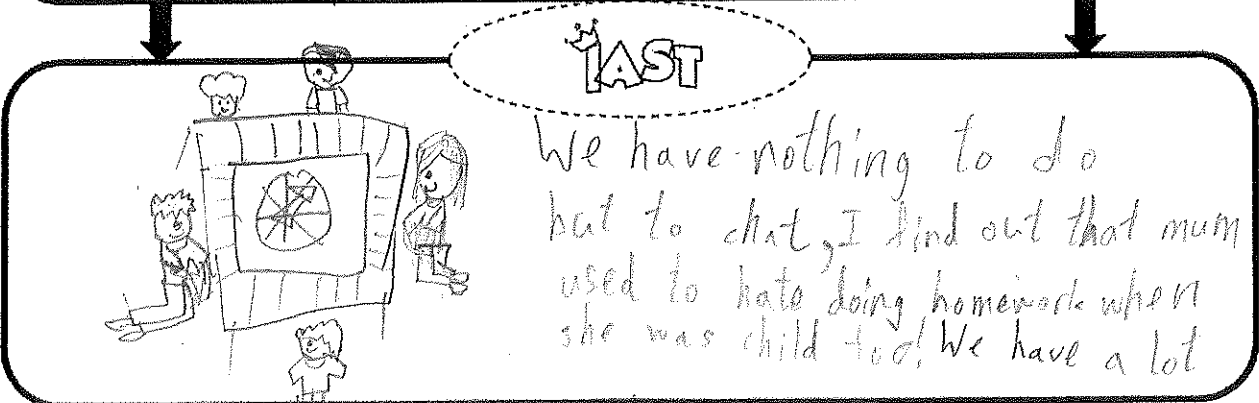 LAST
We have nothing to do
but to chat, I find out that mum
used to hate doing homework when
she was child too! We have a lot